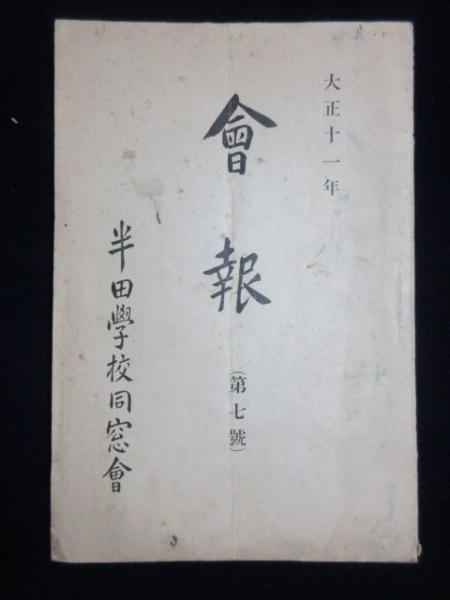 大正十一年
會報
（第七號）
半田學校同窓會